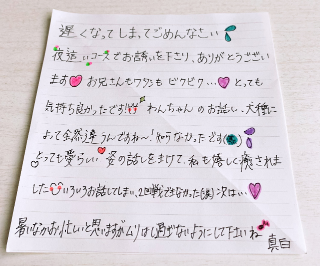 遅くなってしまってごめんなさい
夜這いコースでお誘いを下さり、ありがとうござい
ます お兄さんもワタシも ビクビク… とっても
気持ち良かったです!! わんちゃんのお話し、犬種に
よって全然違うんですね〜！知らなかったです
とっても愛らしい 姿の話しをきけて、私も嬉しく癒されま
した いろいろお話してしまい、2回戦できなかった(涙)次は…
暑いなかお忙しいと思いますがムリはし過ぎないようにして下さいね
真白